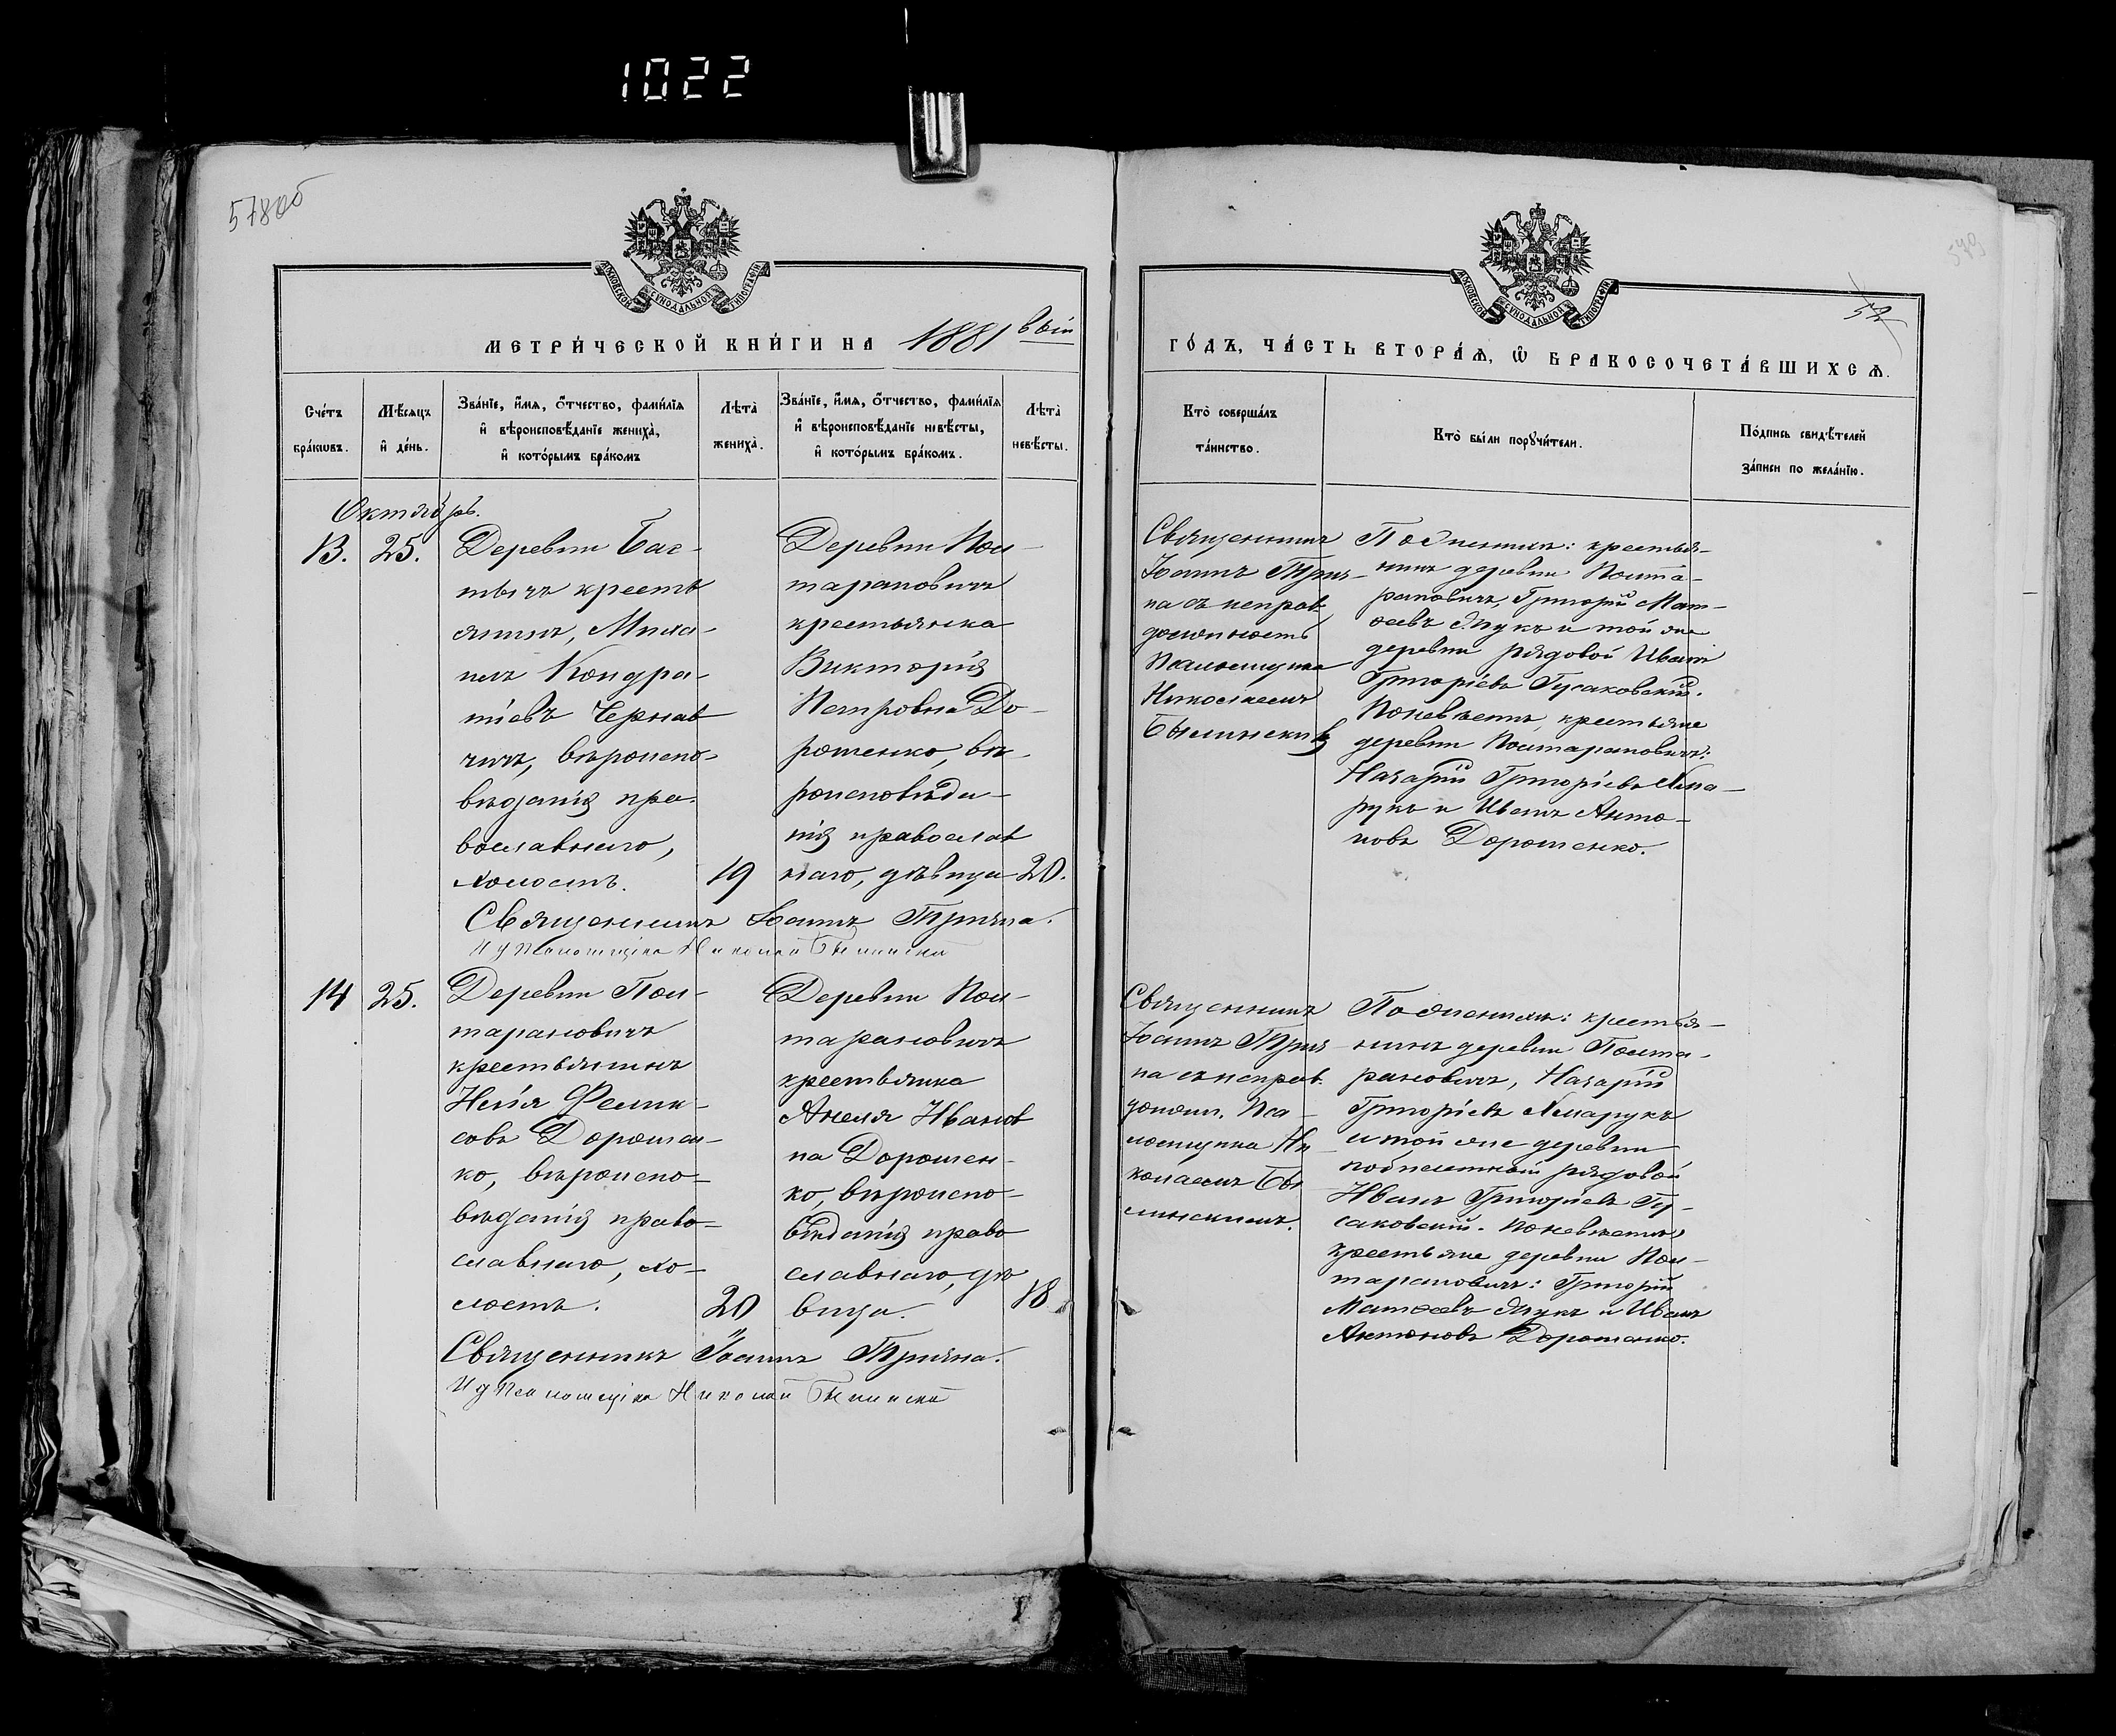 1022
578об
579
52
МОСКОВСКОЙ СѴНОДАЛЬНОЙ ТИПОГРАФІИ
МОСКОВСКОЙ СѴНОДАЛЬНОЙ ТИПОГРАФІИ
МЕТРИ́ЧЕСКОЙ КНИ́ГИ НА 1881 вый
ГО́ДЪ, ЧА́СТЬ ВТОРА́Ѧ, Ѡ҆ БРАКОСОЧЕТА́ВШИХСѦ.
Сче́тъ
бра́кѡвъ.
Мѣ́сяцъ
и҆ де́нь.
Зва́нїе, и҆́мѧ, ѻ҆́тчество, фами́лїѧ
и҆ вѣроисповѣ́данїе жениха̀,
и҆ кото́рымъ бра́комъ
Лѣ́та̀
жениха̀.
Зва́нїе, и҆́мѧ, ѻ҆́тчество, фами́лїѧ
и҆ вѣроисповѣ́данїе невѣ́сты,
и҆ кото́рымъ бра́комъ.
Лѣ́та̀
невѣ́сты.
Кто̀ соверша́лъ
та́инство.
Кто̀ бы́ли порꙋчи́тели.
По́дпись свидѣ́телей
за́писи по жела́нїю.
Октябрь.
13.
25.
Деревни
крестья
янинъ, Миха-
илъ Кондра-
тіевъ Чернав
чичъ, вѣроиспо-
вѣданія пра-
вославнаго,
холостъ.
19
Деревни Пол-
тарановичъ
крестьянка
Викторія
Петровна До-
рошенко, вѣ-
роисповѣда-
нія православ
наго, дѣвица
20.
Священникъ
Іоаннъ Тряп-
па съ исправ.
должность
Псаломщика
Николаемъ
Былинскимъ
По женихѣ: крестья-
нинъ деревни Полта-
рановичъ, Григорій Мат-
ѳеевъ Жукъ и той же
деревни рядовой Иванъ
Григоріевъ Гусаковскій.
По невѣстѣ, крестьяне
деревни Полтарановичъ:
Назарій Григоріевъ Хма-
рукъ и Иванъ Анто-
новъ Дорошенко.
Священникъ Іоаннъ
И д Псаломщика Николай Былинскій
14
25.
Деревни Пол-
тарановичъ
крестьянинъ
Феликсовъ Дорошен-
ко, вѣроиспо-
вѣданія право-
славнаго, хо-
лостъ.
20
Деревни Пол-
тарановичъ
крестьянка
Анеля Иванов
на Дорошен-
ко, вѣроиспо-
вѣданія право
славнаго, дѣ
вица.
18
Священникъ
Іоаннъ
па съ исправ.
должн. Пса-
ломщика Ни-
колаемъ Бы
линскимъ.
По женихѣ: крестья-
нинъ деревни Полта-
рановичъ, Назарій
Григоріевъ Хмарукъ
и той же деревни
рядовой
Иванъ Григоріевъ Гу-
саковскій. По невѣстѣ
крестьяне деревни Пол-
тарановичъ: Григорій
Матѳеевъ Жукъ и Иванъ
Антоновъ Дорошенко.
Священникъ Іоаннъ
И д Псаломщика Николай Былинскій